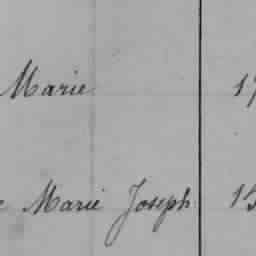 Marie 17
Marie Joseph 15